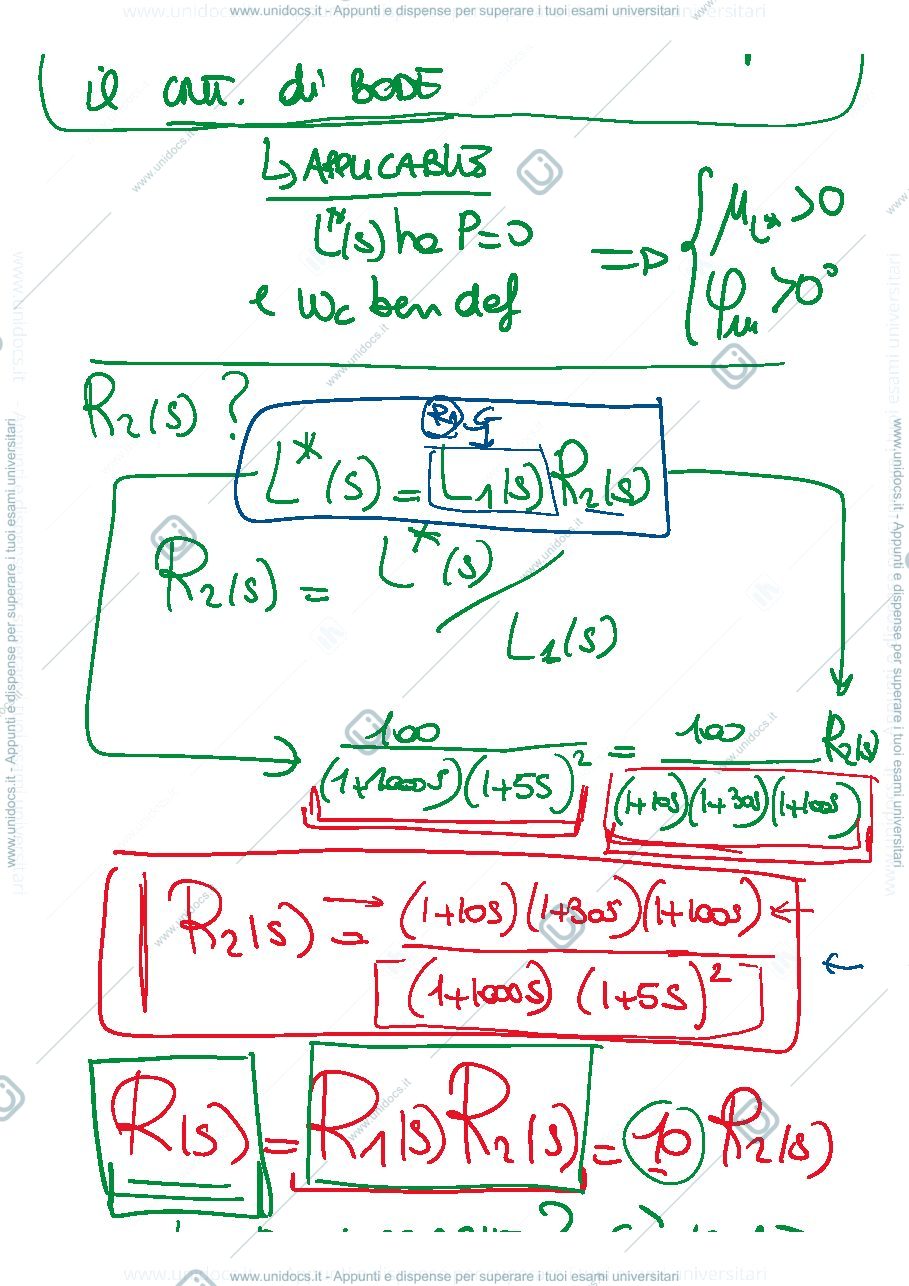 www.unidocs.it - Appunti e dispense per superare i tuoi esami universitari
il crit. di BODE
↳ APPLICABILE
L*(s) ha P=0
e ωc ben def
⇒ { μL* >0
φm >0°
R2(s) ?
R1 G
L*(s) = L1(s) R2(s)
R2(s) = L*(s) / L1(s)
100 / (1+1000s)(1+5s)² = 100 / (1+10s)(1+30s)(1+100s) R2(s)
R2(s) = (1+10s)(1+30s)(1+100s) / (1+1000s)(1+5s)²
R(s) = R1(s) R2(s) = 10 R2(s)
www.unidocs.it - Appunti e dispense per superare i tuoi esami universitari